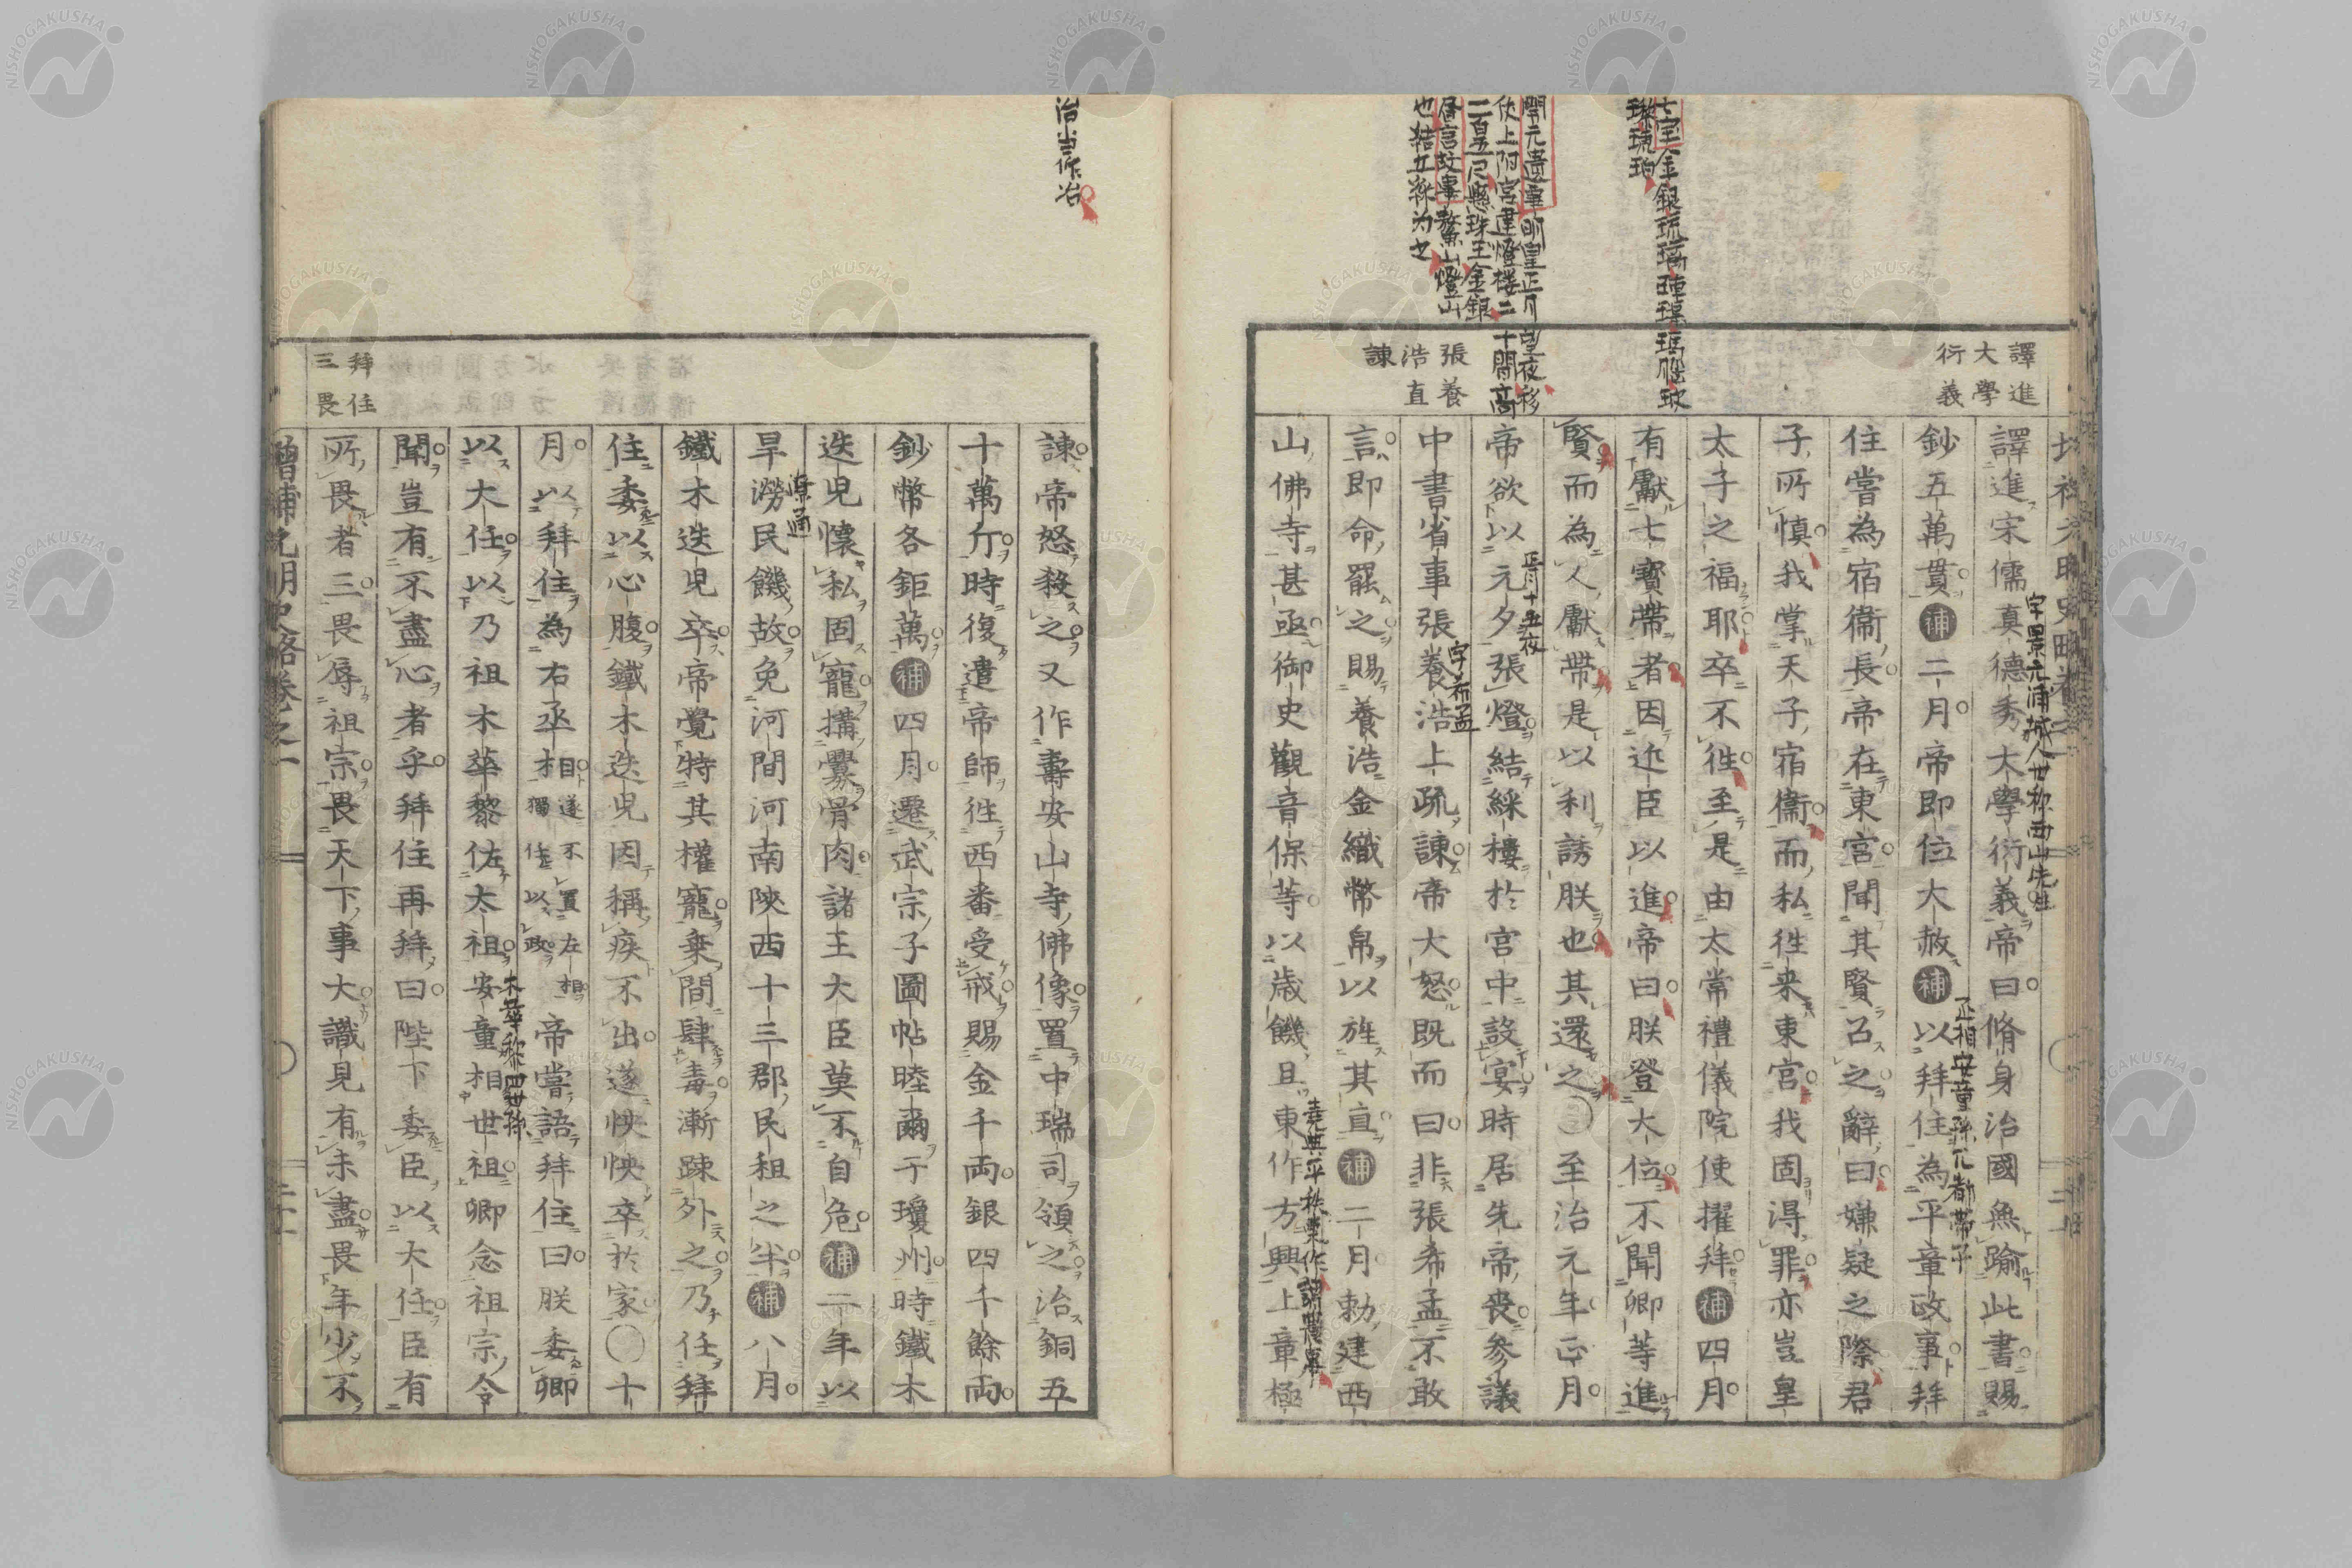 譯進
大學
衍義
譯進宋儒真德秀大學衍義帝曰脩身治國無踰此書賜
鈔五萬貫補二月帝即位大赦補以拜住為平章政事拜
住嘗為宿衞長帝在東宮聞其賢召之辭曰嫌疑之際君
子所慎我掌天子宿衞而私徃来東宮我固得罪亦豈皇
太子之福耶卒不徃至是由太常禮儀院使擢拜補四月
有獻七寶帶者因近臣以進帝曰朕登大位不聞卿等進
賢而為人獻帶是以利誘朕也其還之〇至治元年正月
帝欲以元夕張燈結綵樓於宮中設宴時居先帝喪參議
中書省事張養浩上疏諫帝大怒既而曰非張希孟不敢
言即命罷之賜養浩金織幣帛以旌其直補二月勅建西
山佛寺甚亟御史觀音保等以歲饑且東作方興上章極
張養
浩直
諫
七宝金銀琉璃硨磲瑪瑙玻
璨琥珀
開元遺事明皇正月望夜移
仗上阳宮建燈楼二十間高
二百五尺懸珠玉金銀
昼言故事鰲山燈山
也結五綵为之
字景元浦城人世称西山先生
丞相安童孫兀都帶子
正月十五夜
字希孟
堯典平秩東作謂農事
治当作冶
諫帝怒殺之又作壽安山寺佛像置中瑞司領之治銅五
十萬斤時復遣帝師徃西番受戒賜金千兩銀四千餘兩
鈔幣各鉅萬補四月遷武宗子圖帖睦爾于瓊州時鐵木
迭児懷私固寵搆釁骨肉諸王大臣莫不自危補二年以
旱澇民饑故免河間河南陝西十三郡民租之半補八月
鐵木迭児卒帝覺特其權寵乗間肆毒漸踈外之乃任拜
住委以心腹鐵木迭児因稱疾不出遂怏怏卒於家〇十
月以拜住為右丞相遂不置左相獨任以政帝嘗語拜住曰朕委卿
以大任以乃祖木華黎佐太祖安童相世祖卿念祖宗令
聞豈有不盡心者乎拜住再拜曰陛下委臣以大任臣有
所畏者三畏辱祖宗畏天下事大識見有未盡畏年少不
潦通
木華黎四世孫
拜住
三畏
增補元明史略卷之一